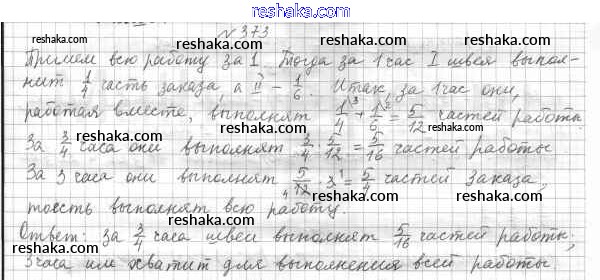 reshaka.com
№ 373
Примем всю работу за 1. Тогда за 1 час I швея выпол-
нит 1/4 часть заказа а II – 1/6. Итак, за 1 час они,
работая вместе, выполнят 1/4 ³ + 1/6 ² = 5/12 частей работы.
За 3/4 часа они выполнят 3/4 · 5/12 = 5/16 частей работы
За 3 часа они выполнят 5/12 · 3 = 5/4 частей заказа,
тоесть выполнят всю работу.
Ответ: за 3/4 часа швеи выполнят 5/16 частей работы;
3 часа им хватит для выполнения всей работы
reshaka.com
reshaka.com
reshaka.com
reshaka.com
reshaka.com
reshaka.com
reshaka.com
reshaka.com
reshaka.com
reshaka.com
reshaka.com
reshaka.com